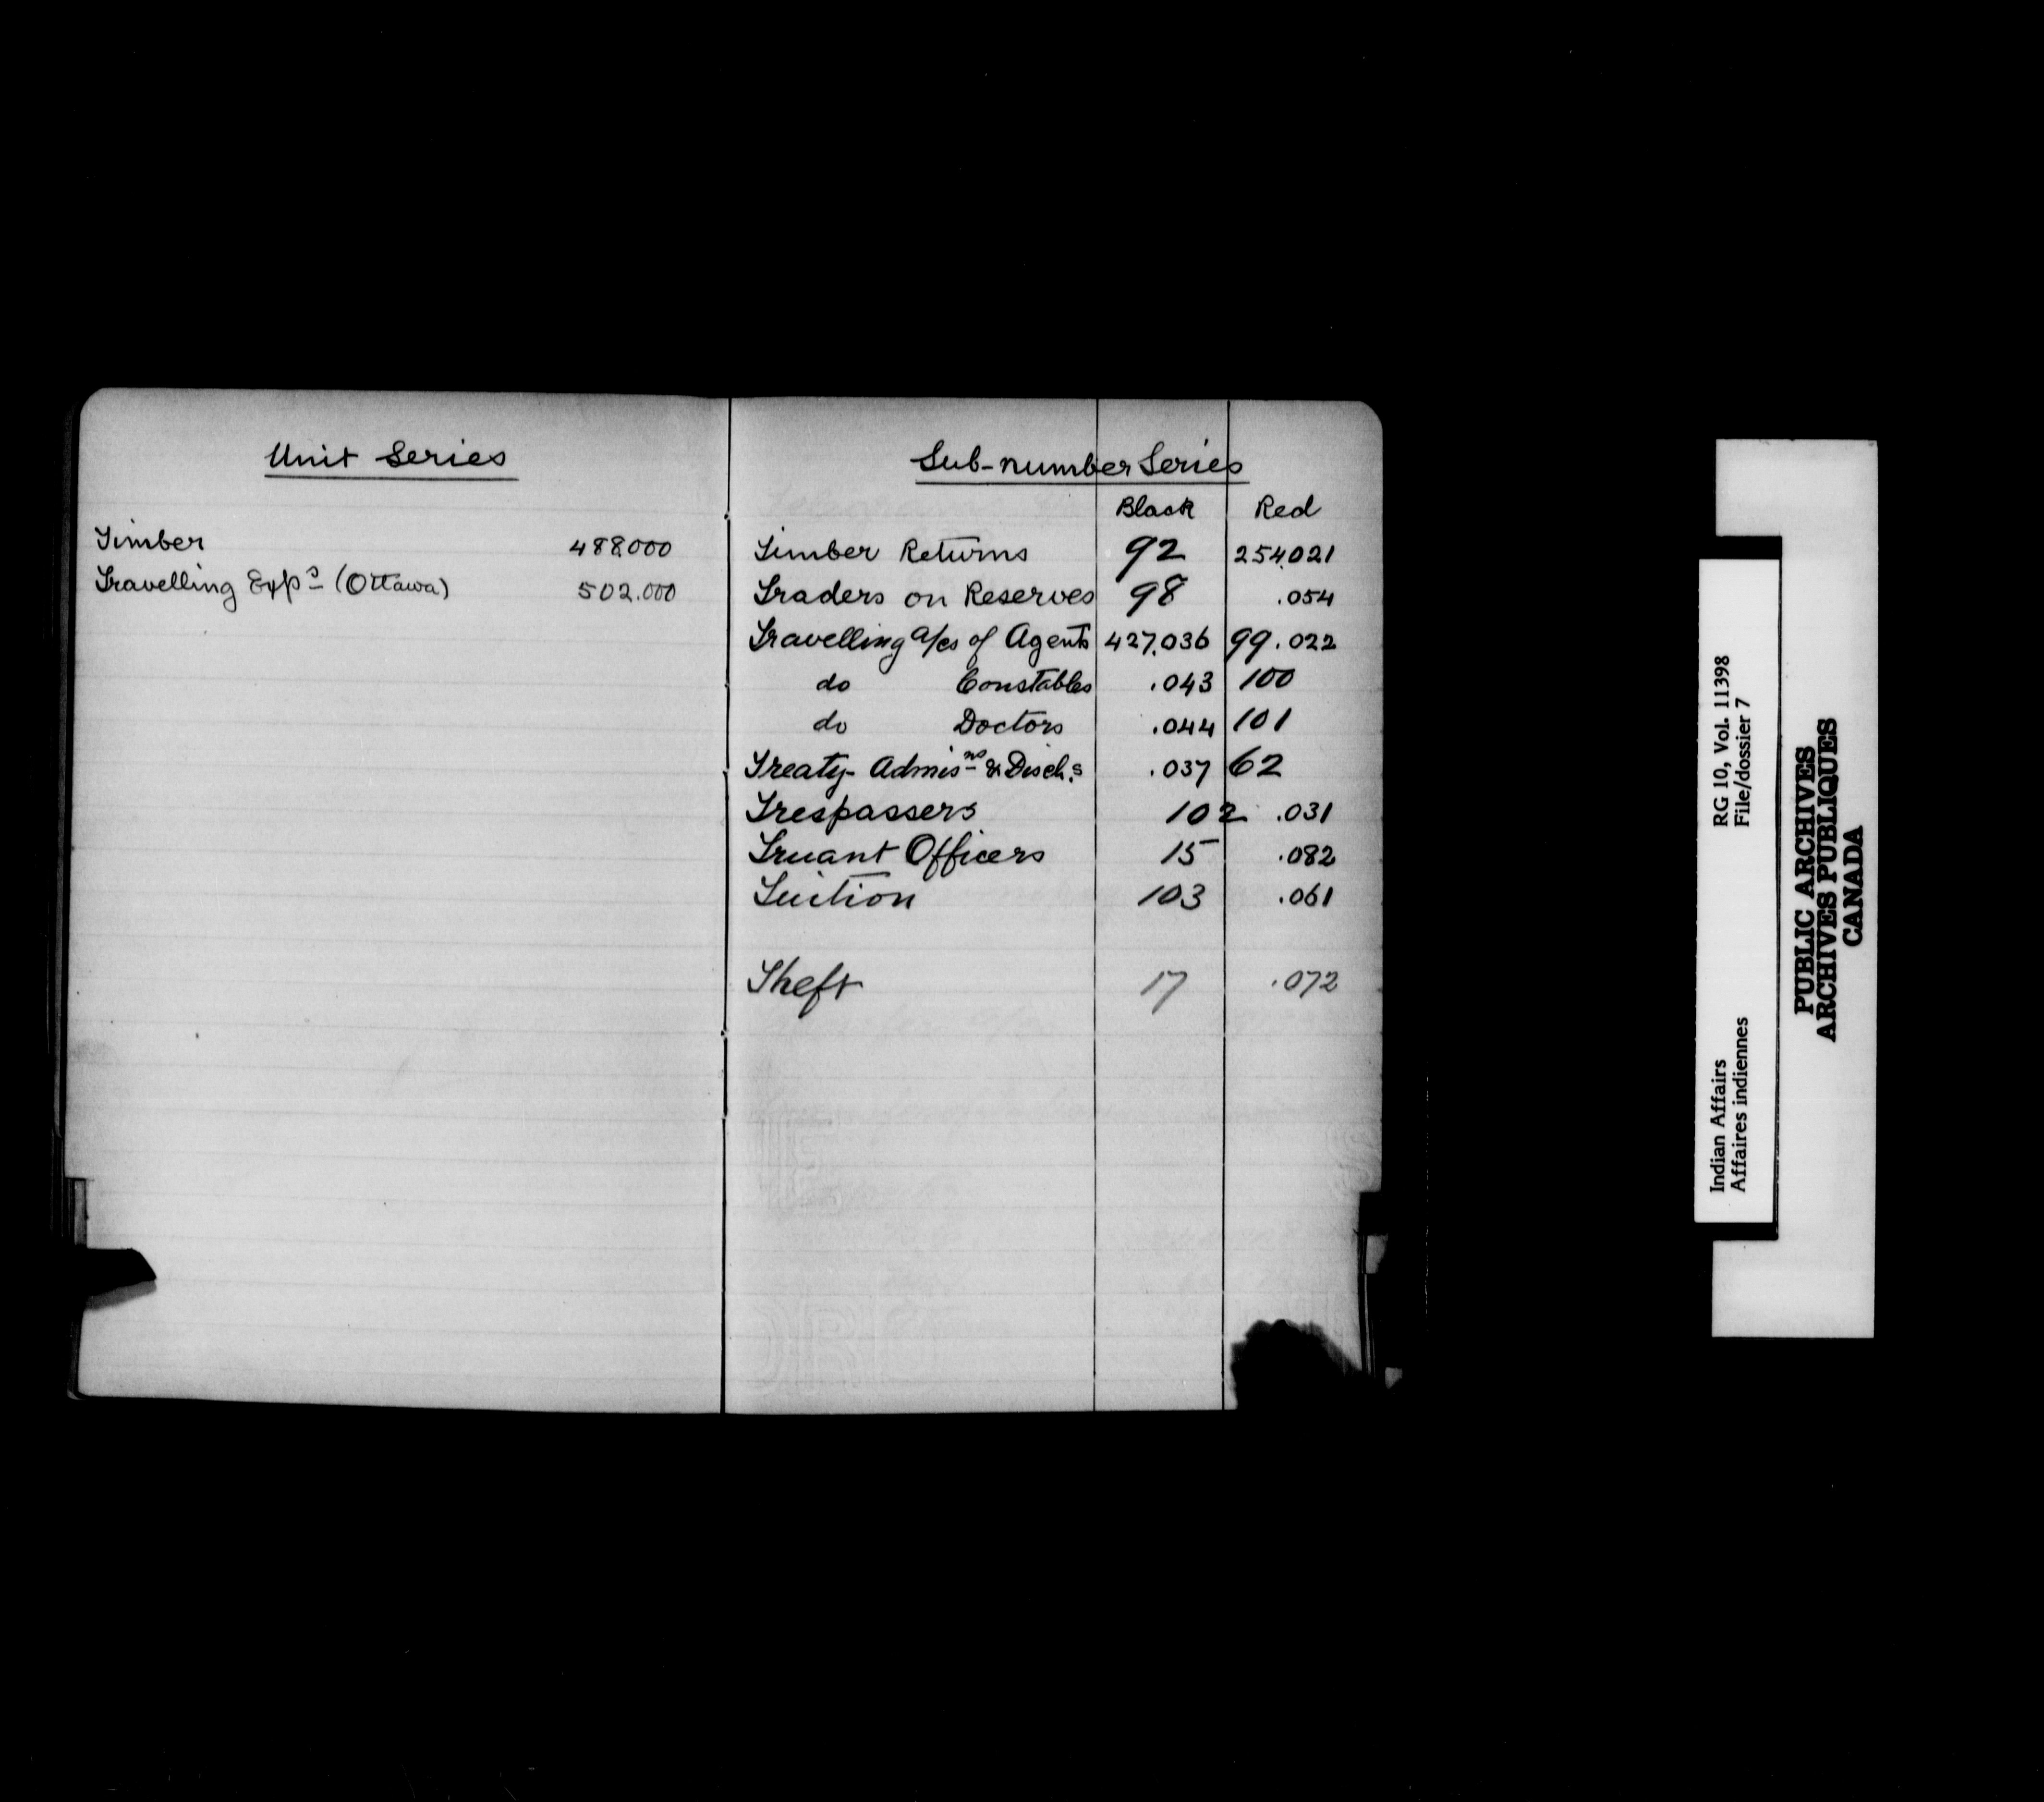 Unit Series
Timber 488.000
Travelling Exps (Ottawa) 502.000
Sub-number Series
Black Red
Timber Returns 92 254.021
Traders on Reserves 98 .054
Travelling a/cs of Agents 427.036 99.022
do Constables .043 100
do Doctors .044 101
Treaty- Admisns & Disch.s .037 62
Trespassers 102 .031
Truant Officers 15 .082
Tuition 103 .061
Theft 17 .072
RG 10, Vol. 11398
File/dossier 7
Indian Affairs
Affaires indiennes
PUBLIC ARCHIVES
ARCHIVES PUBLIQUES
CANADA